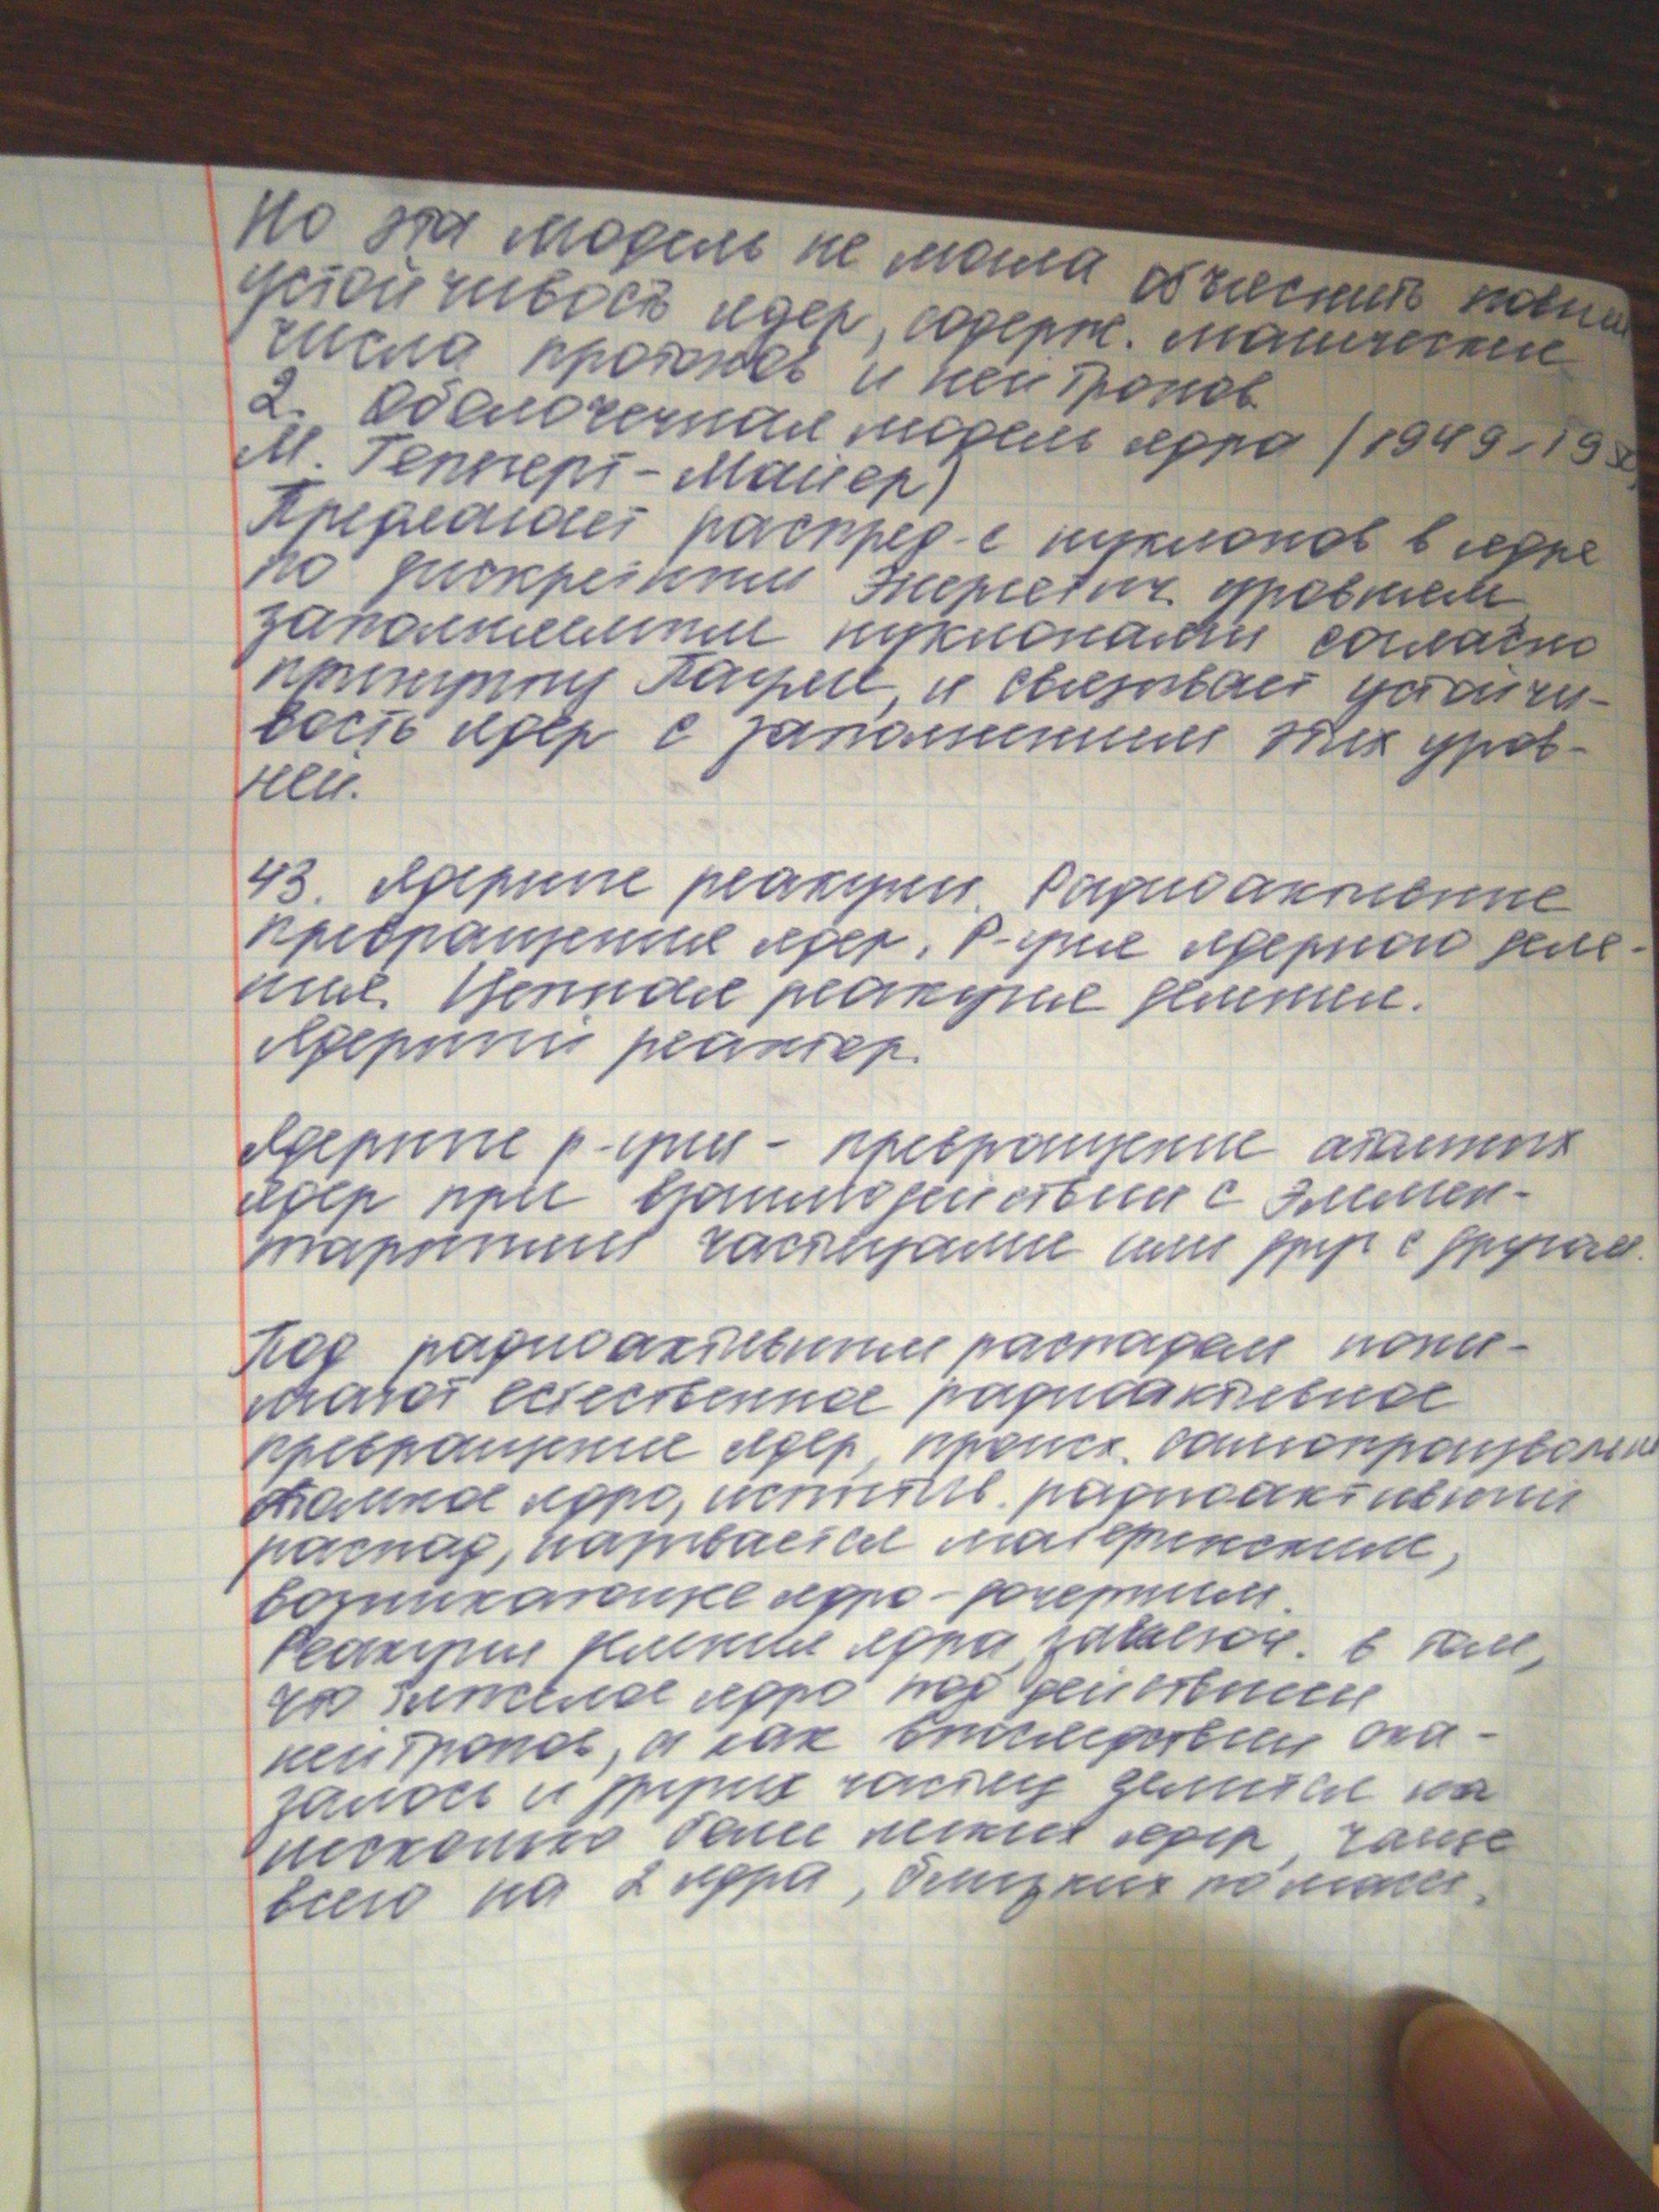 Но эта модель не могла объяснить повыш
устойчивость ядер, содерж. магические
числа протонов и нейтронов.
2. Оболочечная модель ядра (1949-1950,
М. Гепперт-Майер)
Предлагает распред-е нуклонов в ядре
по дискретным энергетич. уровням,
заполняемым нуклонами согласно
принципу Паули, и связывает устойчи-
вость ядер с заполнением этих уров-
ней.
43. Ядерные реакции. Радиоактивные
превращения ядер. Р-ция ядерного деле-
ния. Цепная реакция деления.
Ядерный реактор.
Ядерные р-ции - превращение атомных
ядер при взаимодействии с элемен-
тарными частицами или друг с другом.
Под радиоактивным распадом пони-
мают естественное радиоактивное
превращение ядер, происх. самопроизвольно
Атомное ядро, испытыв. радиоактивный
распад, называется материнским,
возникающее ядро - дочерним.
Реакция деления ядра заключ. в том,
что тяжелое ядро под действием
нейтронов, а как впоследствии ока-
залось и других частиц делится на
несколько более легких ядер, чаще
всего на 2 ядра, близких по массе.